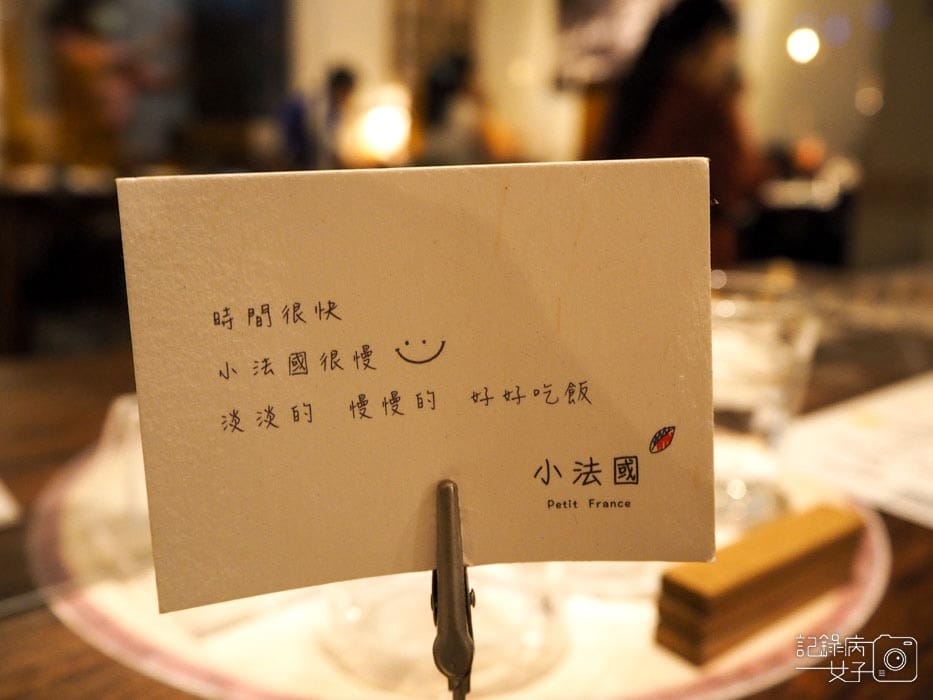 時間很快
小法國很慢
淡淡的 慢慢的 好好吃飯
小法國
Petit France
記錄病
女子